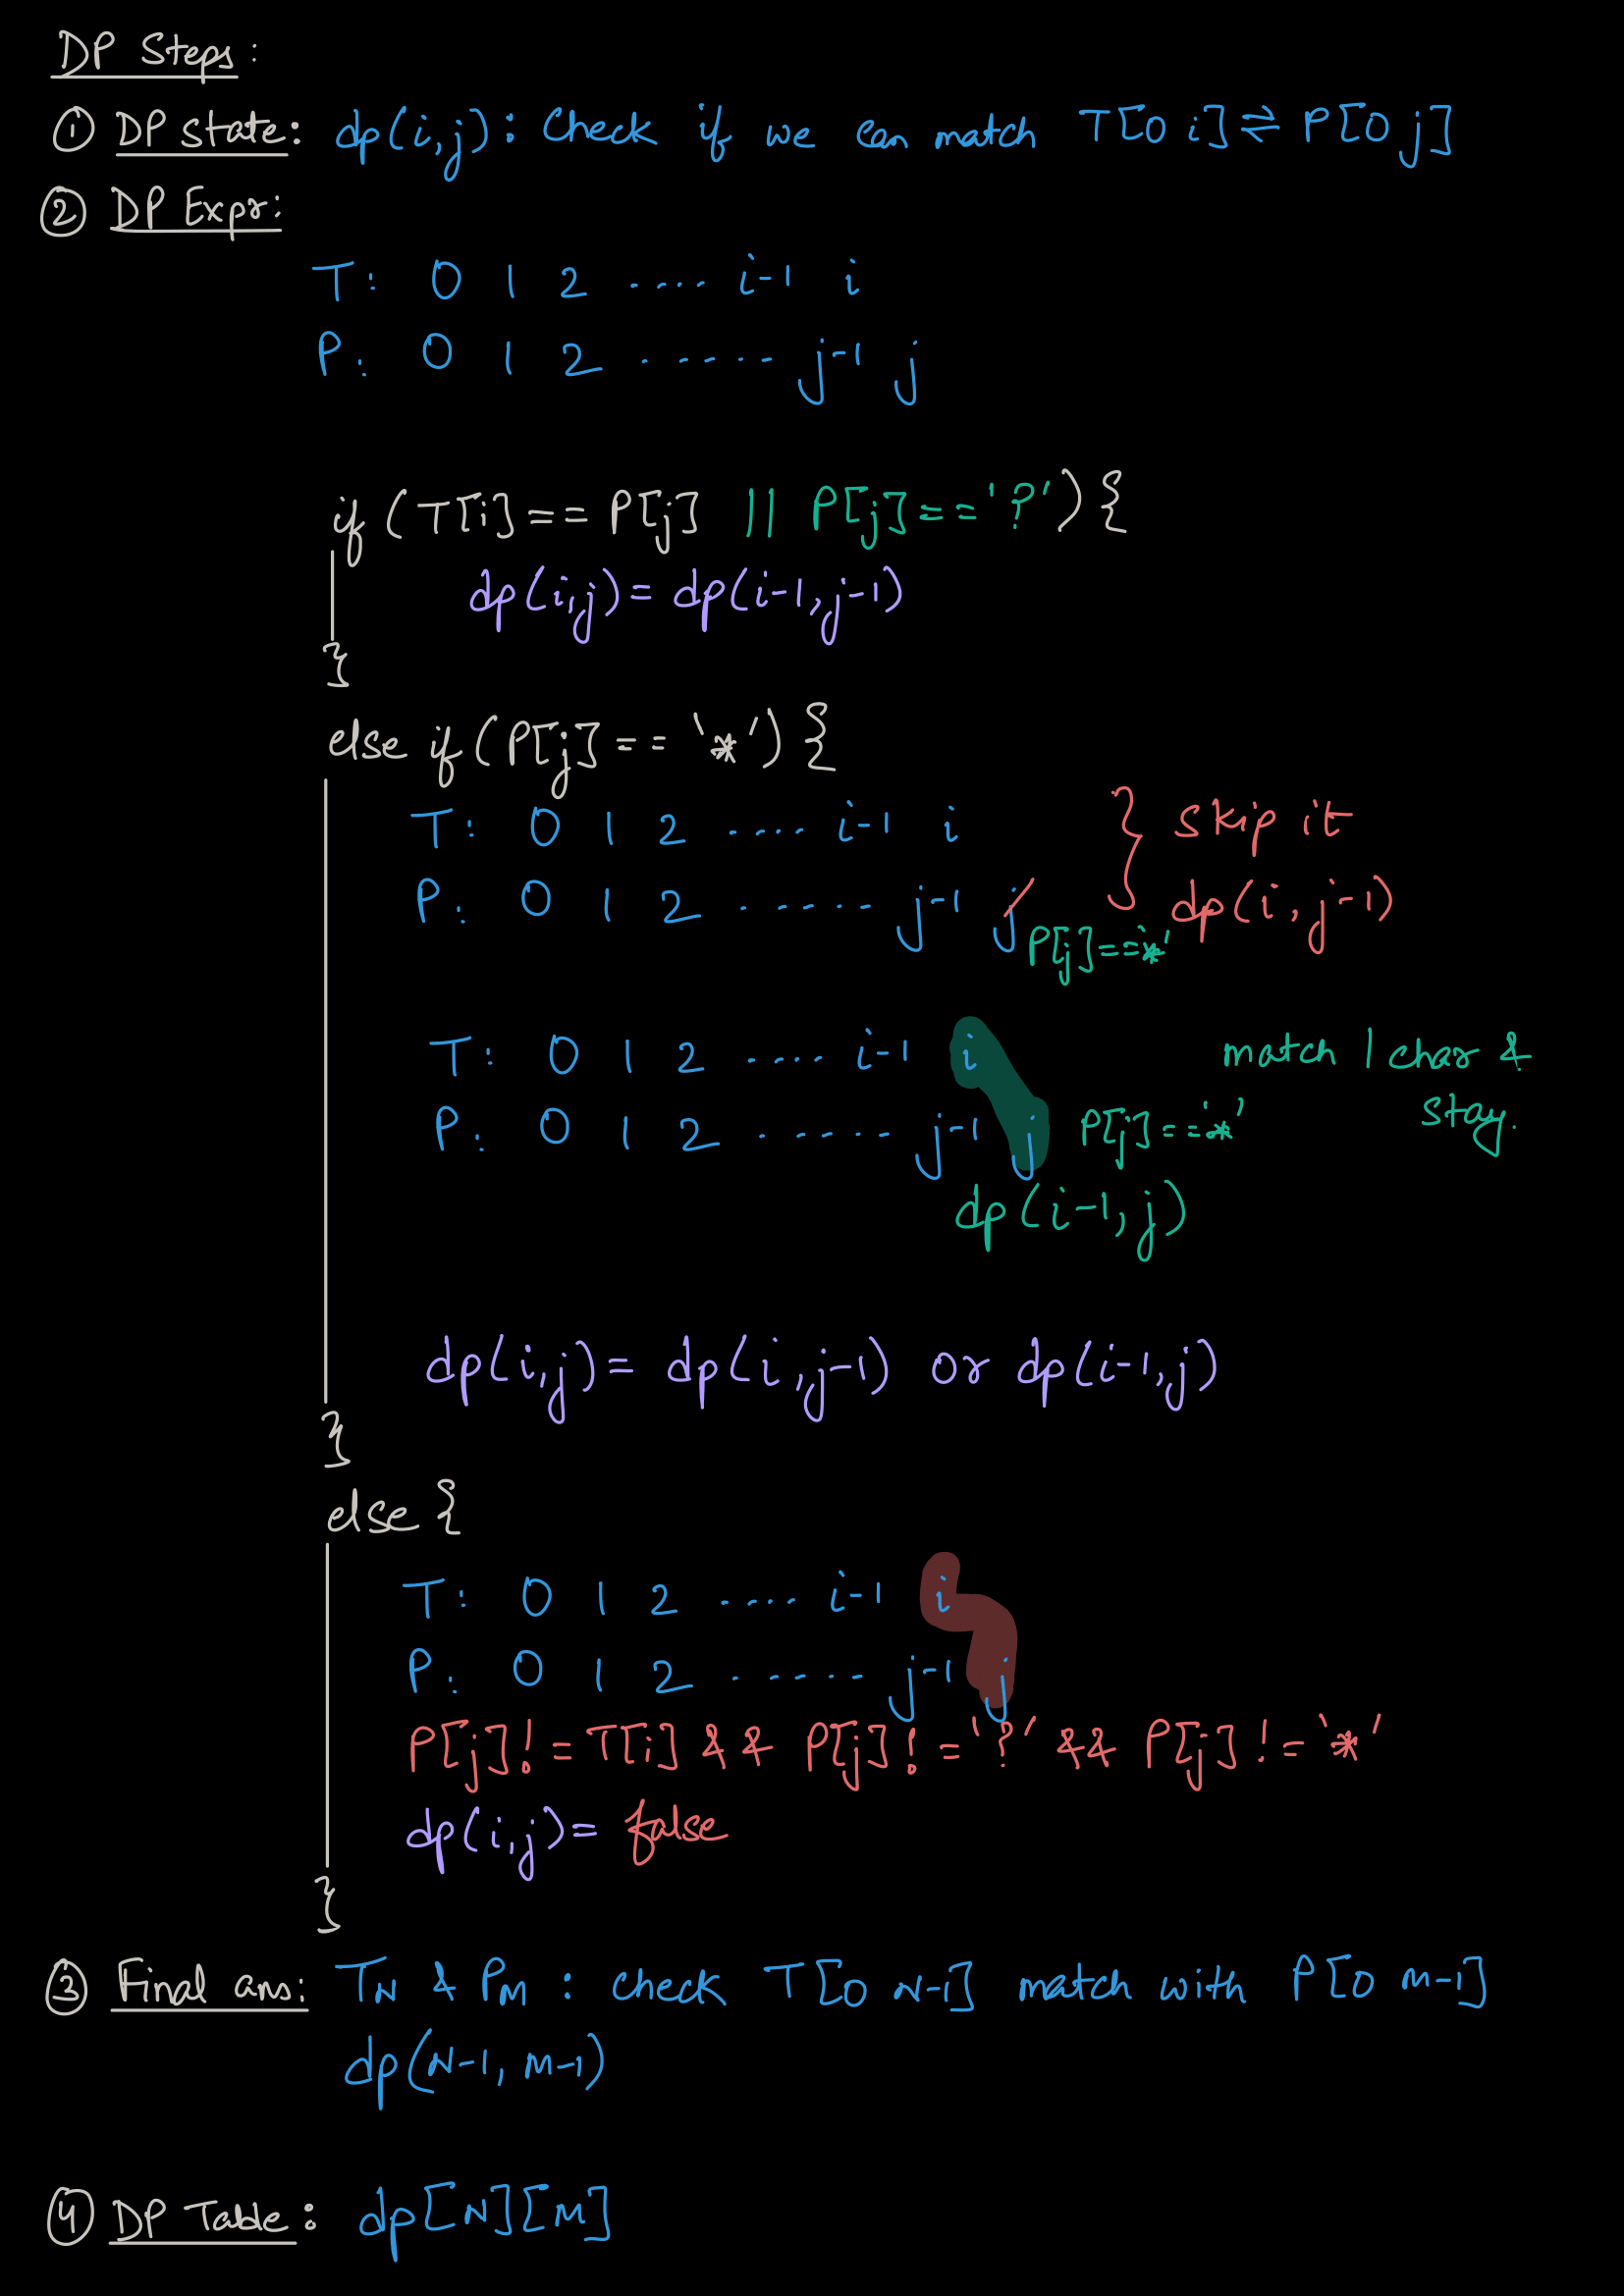 DP Steps:
① DP state: dp(i,j): Check if we can match T[0 i] ⇌ P[0 j]
② DP Expr:
T: 0 1 2 .... i-1 i
P: 0 1 2 ...... j-1 j
if (T[i] == P[j] || P[j] == '?') {
dp(i,j) = dp(i-1,j-1)
}
else if (P[j] == '*') {
T: 0 1 2 .... i-1 i } skip it
P: 0 1 2 ...... j-1 j dp(i,j-1)
P[j]=='*'
T: 0 1 2 .... i-1 i match 1 char &
P: 0 1 2 ...... j-1 j P[j]=='*' stay.
dp(i-1,j)
dp(i,j) = dp(i,j-1) or dp(i-1,j)
}
else {
T: 0 1 2 .... i-1 i
P: 0 1 2 ...... j-1 j
P[j]!=T[i] && P[j]!='?' && P[j]!='*'
dp(i,j) = false
}
③ Final ans: TN & PM : check T[0 N-1] match with P[0 M-1]
dp(N-1, M-1)
④ DP Table: dp[N][M]